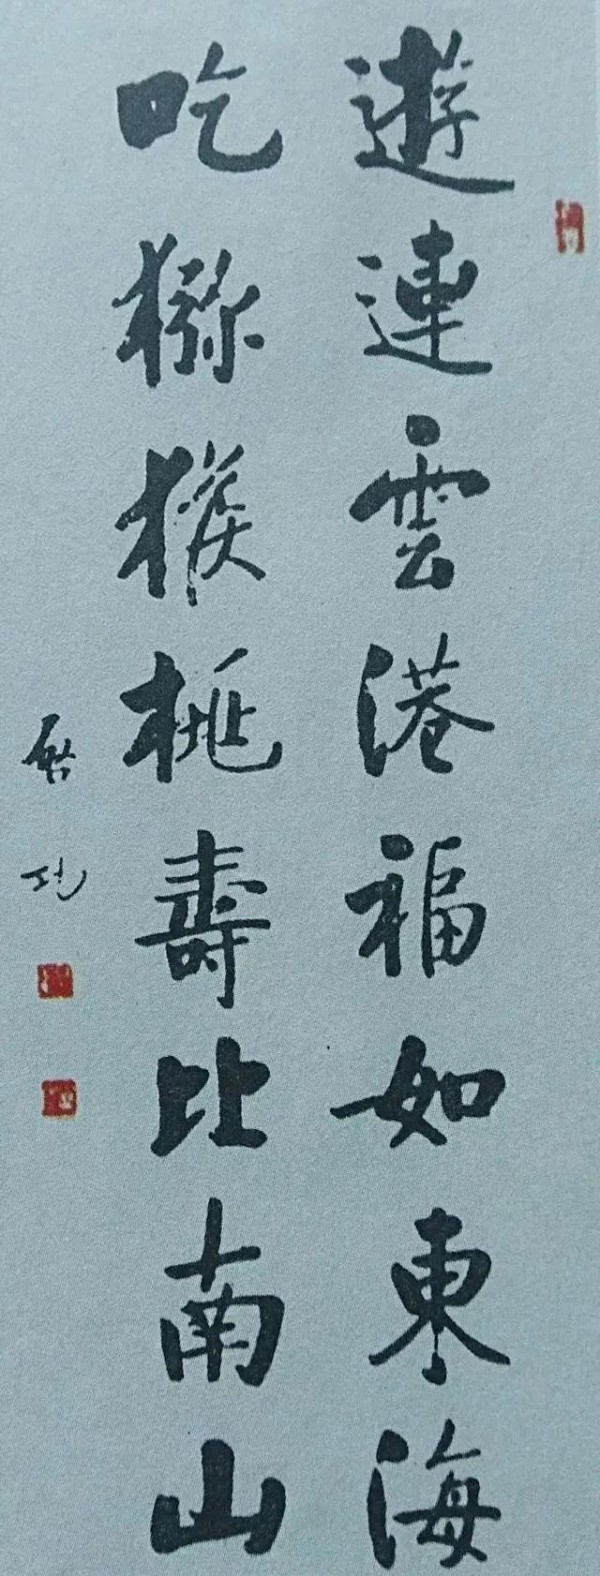 遊連雲港福如東海
吃猕猴桃壽比南山
啓功